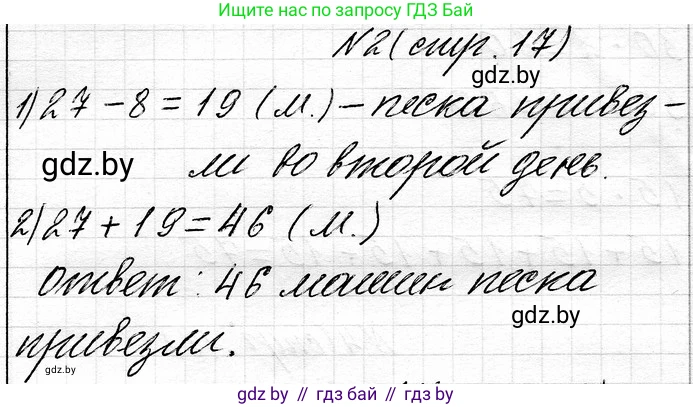 Ищите нас по запросу ГДЗ Бай
N2 (стр. 17)
gdz.by
1) 27 - 8 = 19 (м.) - песка привез-
gdz.by ли во второй день.
2) 27 + 19 = 46 (м.)
Ответ: 46 машин песка
gdz.by
привезли.
gdz.by
gdz.by // гдз бай // gdz.by